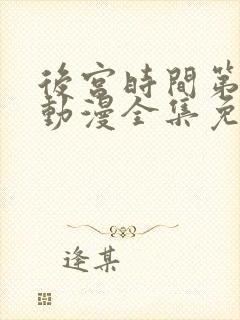 後宮時間第
動漫全集免
逢某